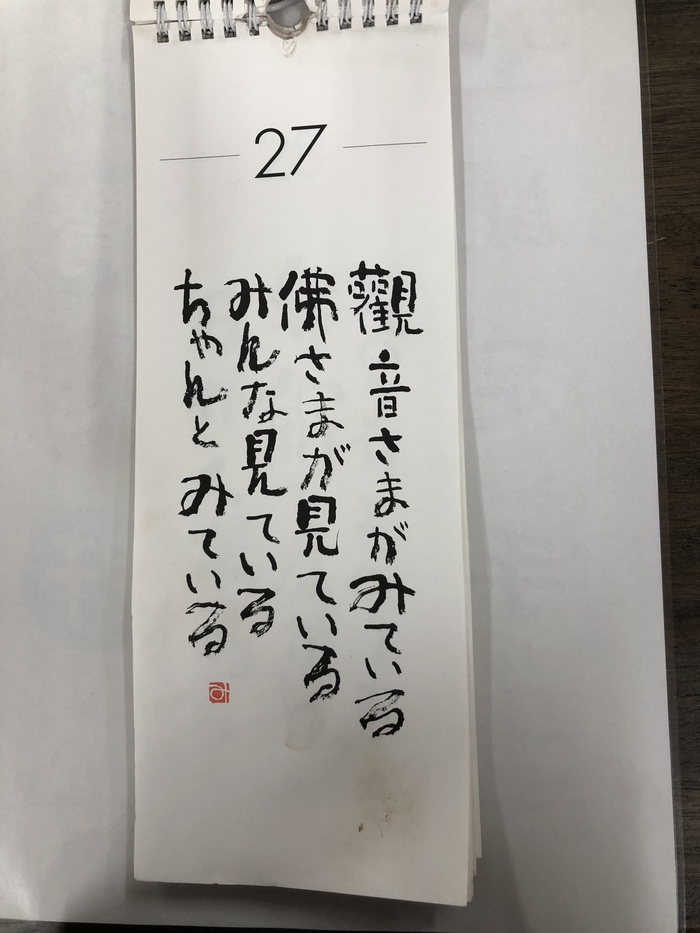 27
觀音さまがみている
佛さまが見ている
みんな見ている
ちゃんとみている
み